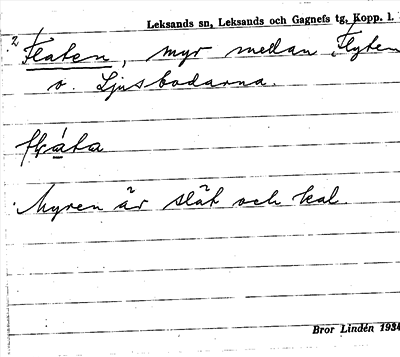 Leksands sn, Leksands och Gagnefs tg, Kopp. l.
2 Flaten, myr mellan Flyten
o. Ljusbodarna.
Myren är slät och kal
Bror Lindén 1934